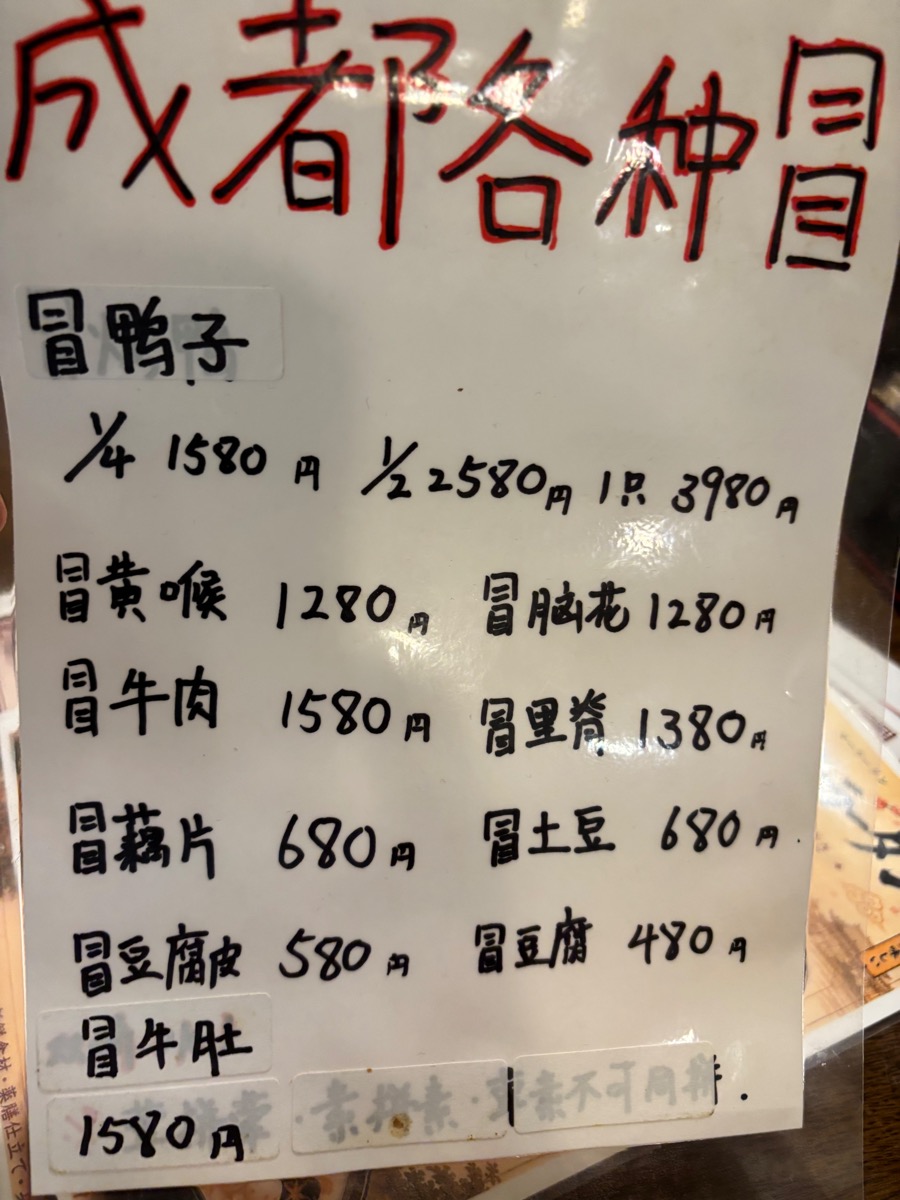 成都各种冒
冒鸭子
1/4 1580円 1/2 2580円 1只 3980円
冒黄喉 1280円 冒脑花 1280円
冒牛肉 1580円 冒里脊 1380円
冒藕片 680円 冒土豆 680円
冒豆腐皮 580円 冒豆腐 480円
冒牛肚
1580円
薬膳仕立て